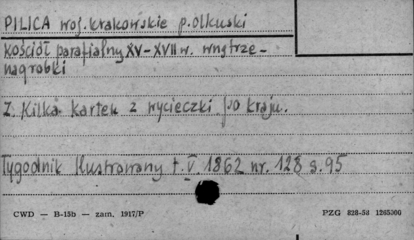 PILICA woj. krakowskie p. olkuski
kościół parafialny XV-XVII w. wnętrze -
nagrobki
Z. Kilka kartek z wycieczki po kraju.
Tygodnik Ilustrowany t. V. 1862 nr. 128 s. 95
CWD — B-15b — zam. 1917/P
PZG 828-58 1265300